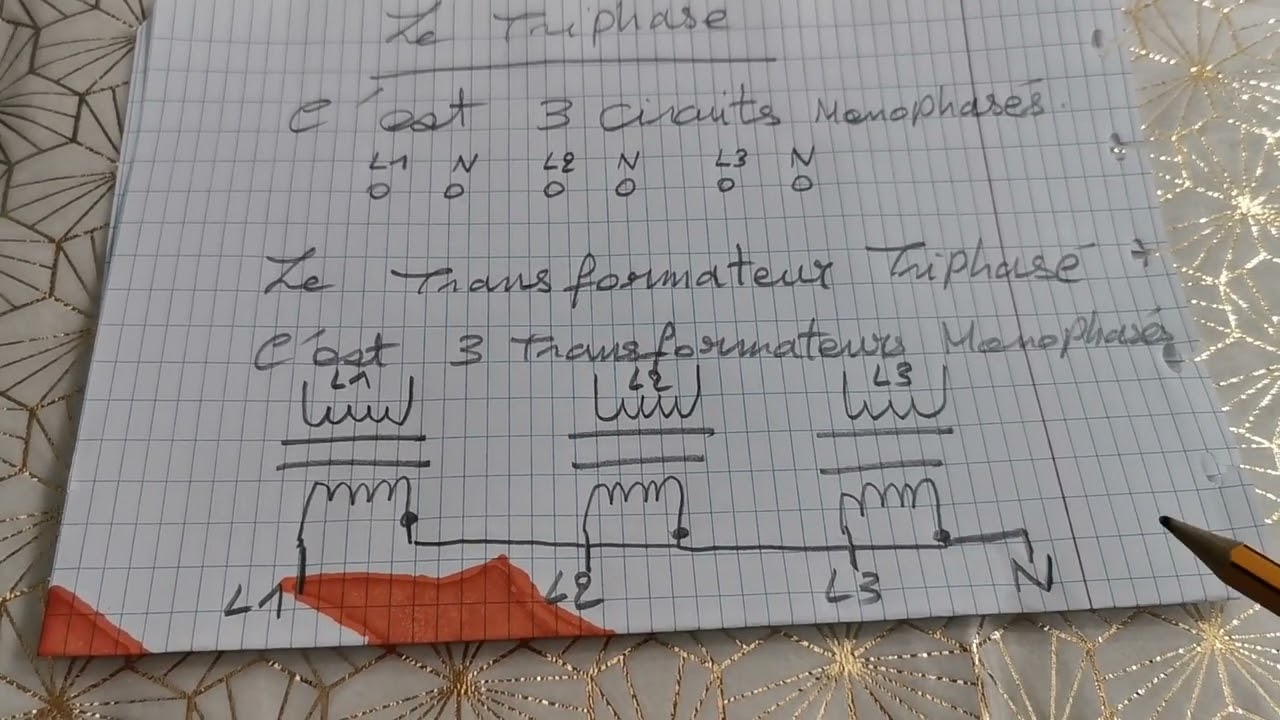 Le Triphasé
C'est 3 Circuits Monophasés.
L1 N L2 N L3 N
Le Transformateur Triphasé :
C'est 3 Transformateurs Monophasés
L1 L2 L3
L1 L2 L3 N